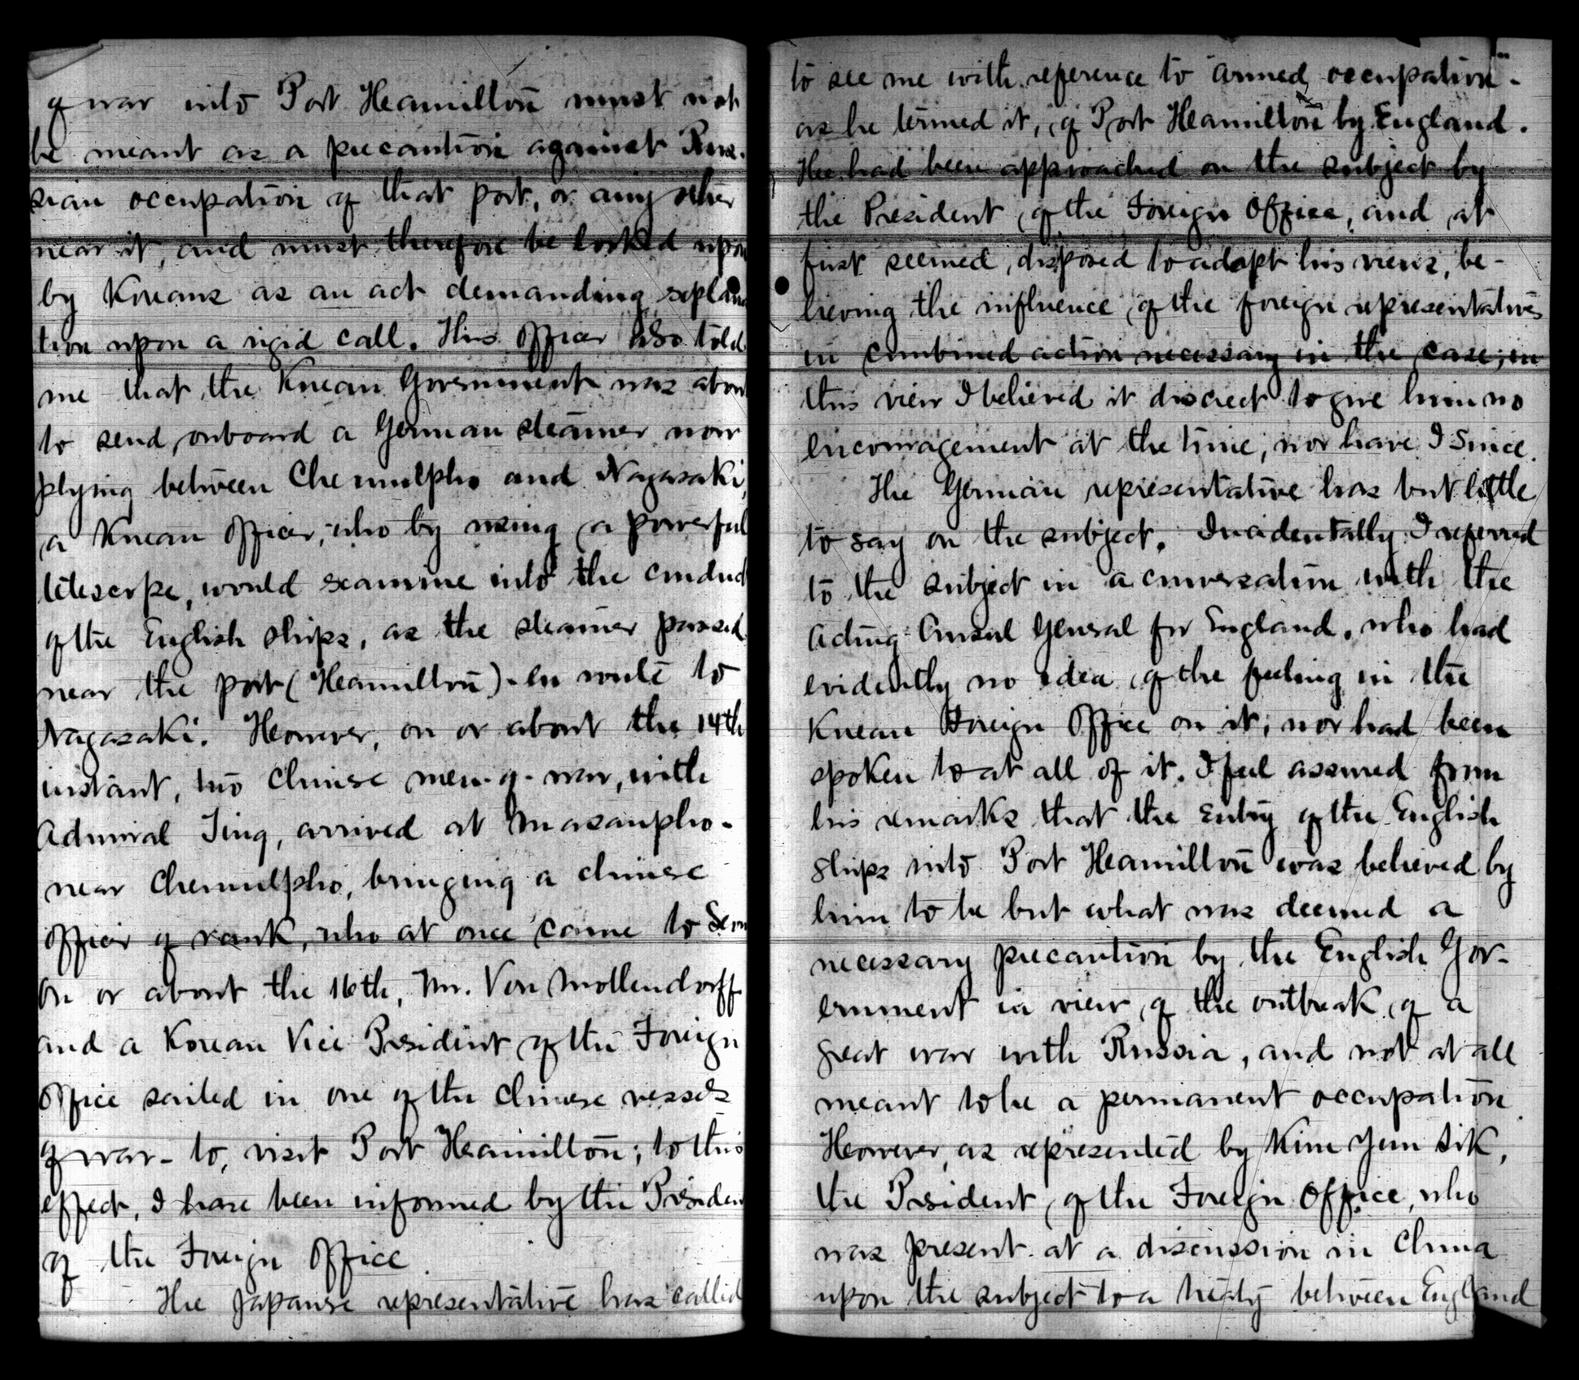 of war into Port Heamilton must not
be meant as a precaution against Rus-
sian occupation of that port, or any other
near it, and must therefore be looked upon
by Koreans as an act demanding explana
tion upon a rigid call. This officer also told
me that the Korean Government was about
to send, onboard a German steamer now
plying between Chemulpho and Nagasaki,
a Korean officer, who by using a powerful
telescope, would examine into the conduct
of the English ships, as the steamer passed
near the port (Heamilton) - en route to
Nagasaki. However, on or about the 14th
instant, two Chinese men-of-war, with
Admiral Ting, arrived at Masanpho -
near Chemulpho, bringing a chinese
officer of rank, who at once came to Seoul
On or about the 16th, Mr. Von Mollendorff
and a Korean Vice President of the Foreign
Office sailed in one of the Chinese vessels
of war - to, visit Port Heamilton; to this
effect, I have been informed by the President
of the Foreign Office.
The Japanese representative has called
to see me with reference to "armed occupation" -
as he termed it, of Port Heamilton by England.
He had been approached on the subject by
the President of the Foreign Office, and at
first seemed disposed to adopt his views, be-
lieving the influence of the foreign representatives
in combined action necessary in the case; in
this view I believed it discreet to give him no
encouragement at the time, nor have I since.
The German representative has but little
to say on the subject. Incidentally I referred
to the subject in a conversation with the
Acting Consul General for England, who had
evidently no idea of the feeling in the
Korean Foreign Office on it, nor had been
spoken to at all of it. I feel assured from
his remarks that the entry of the English
ships into Port Heamilton was believed by
him to be but what was deemed a
necessary precaution by the English Gov-
ernment in view of the outbreak of a
great war with Russia, and not at all
meant to be a permanent occupation.
However, as represented by Kim Yun Sik,
the President of the Foreign Office, who
was present at a discussion in China
upon the subject to a treaty between England